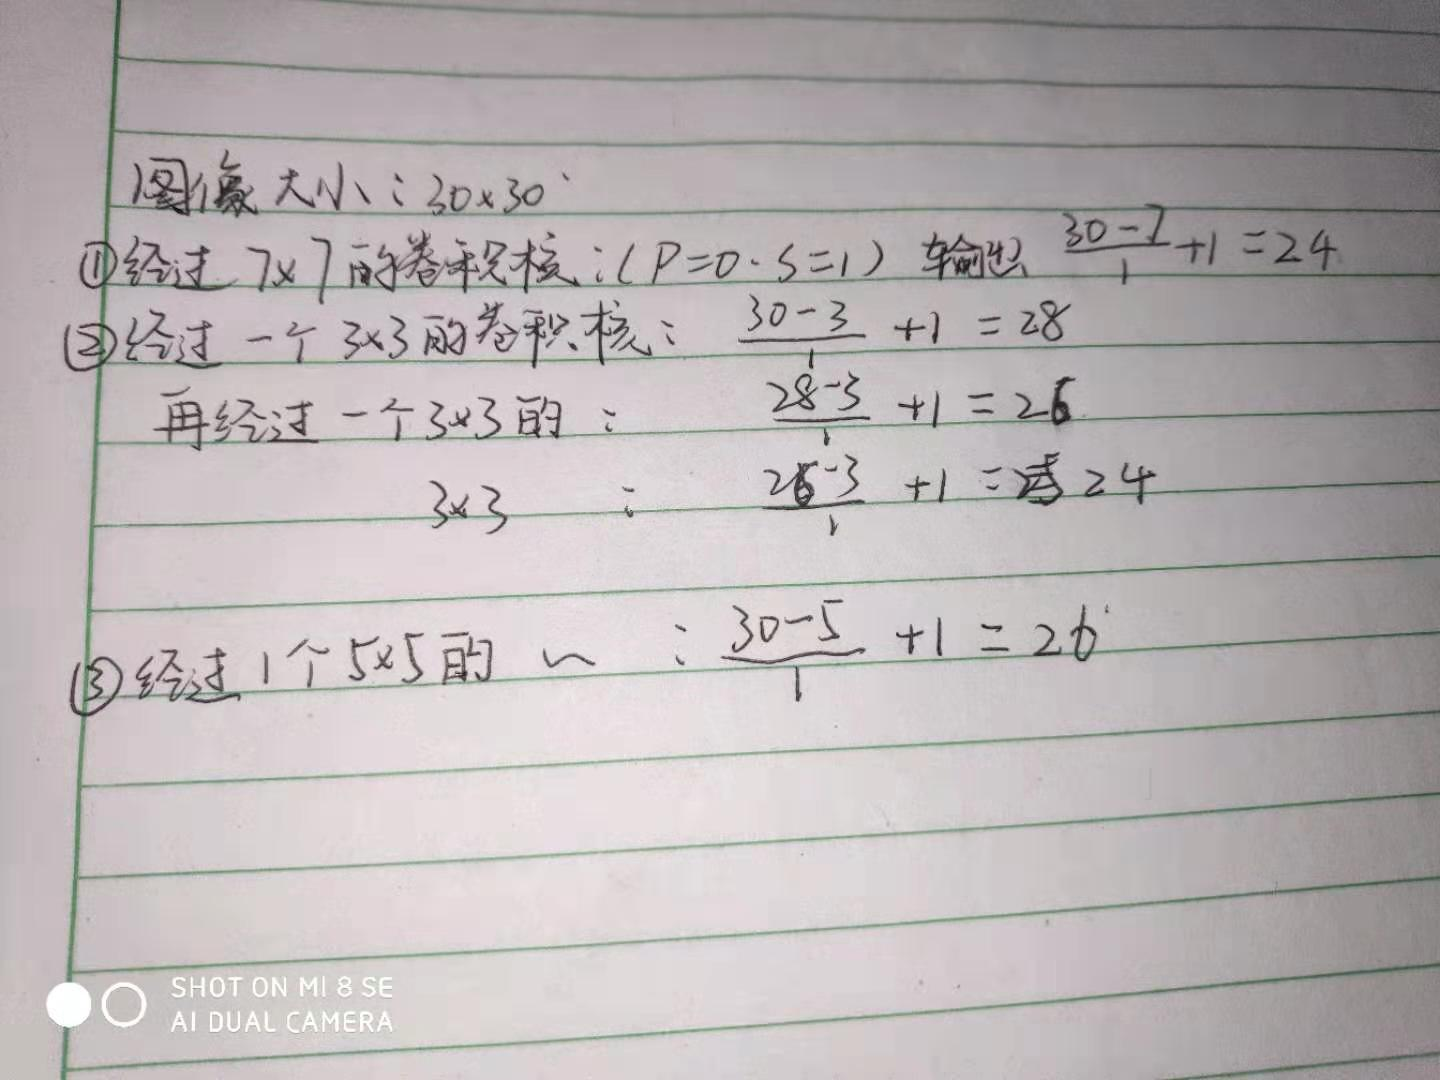 图像大小：30×30
①经过 7×7的卷积核：(P=0．S=1) 输出 \frac{30-7}{1}+1=24
②经过一个3×3的卷积核：\frac{30-3}{1}+1=28
再经过一个3×3的：\frac{28-3}{1}+1=26
3×3 ：\frac{26-3}{1}+1=24
③经过1个5×5的 ~ ：\frac{30-5}{1}+1=26
SHOT ON MI 8 SE
AI DUAL CAMERA